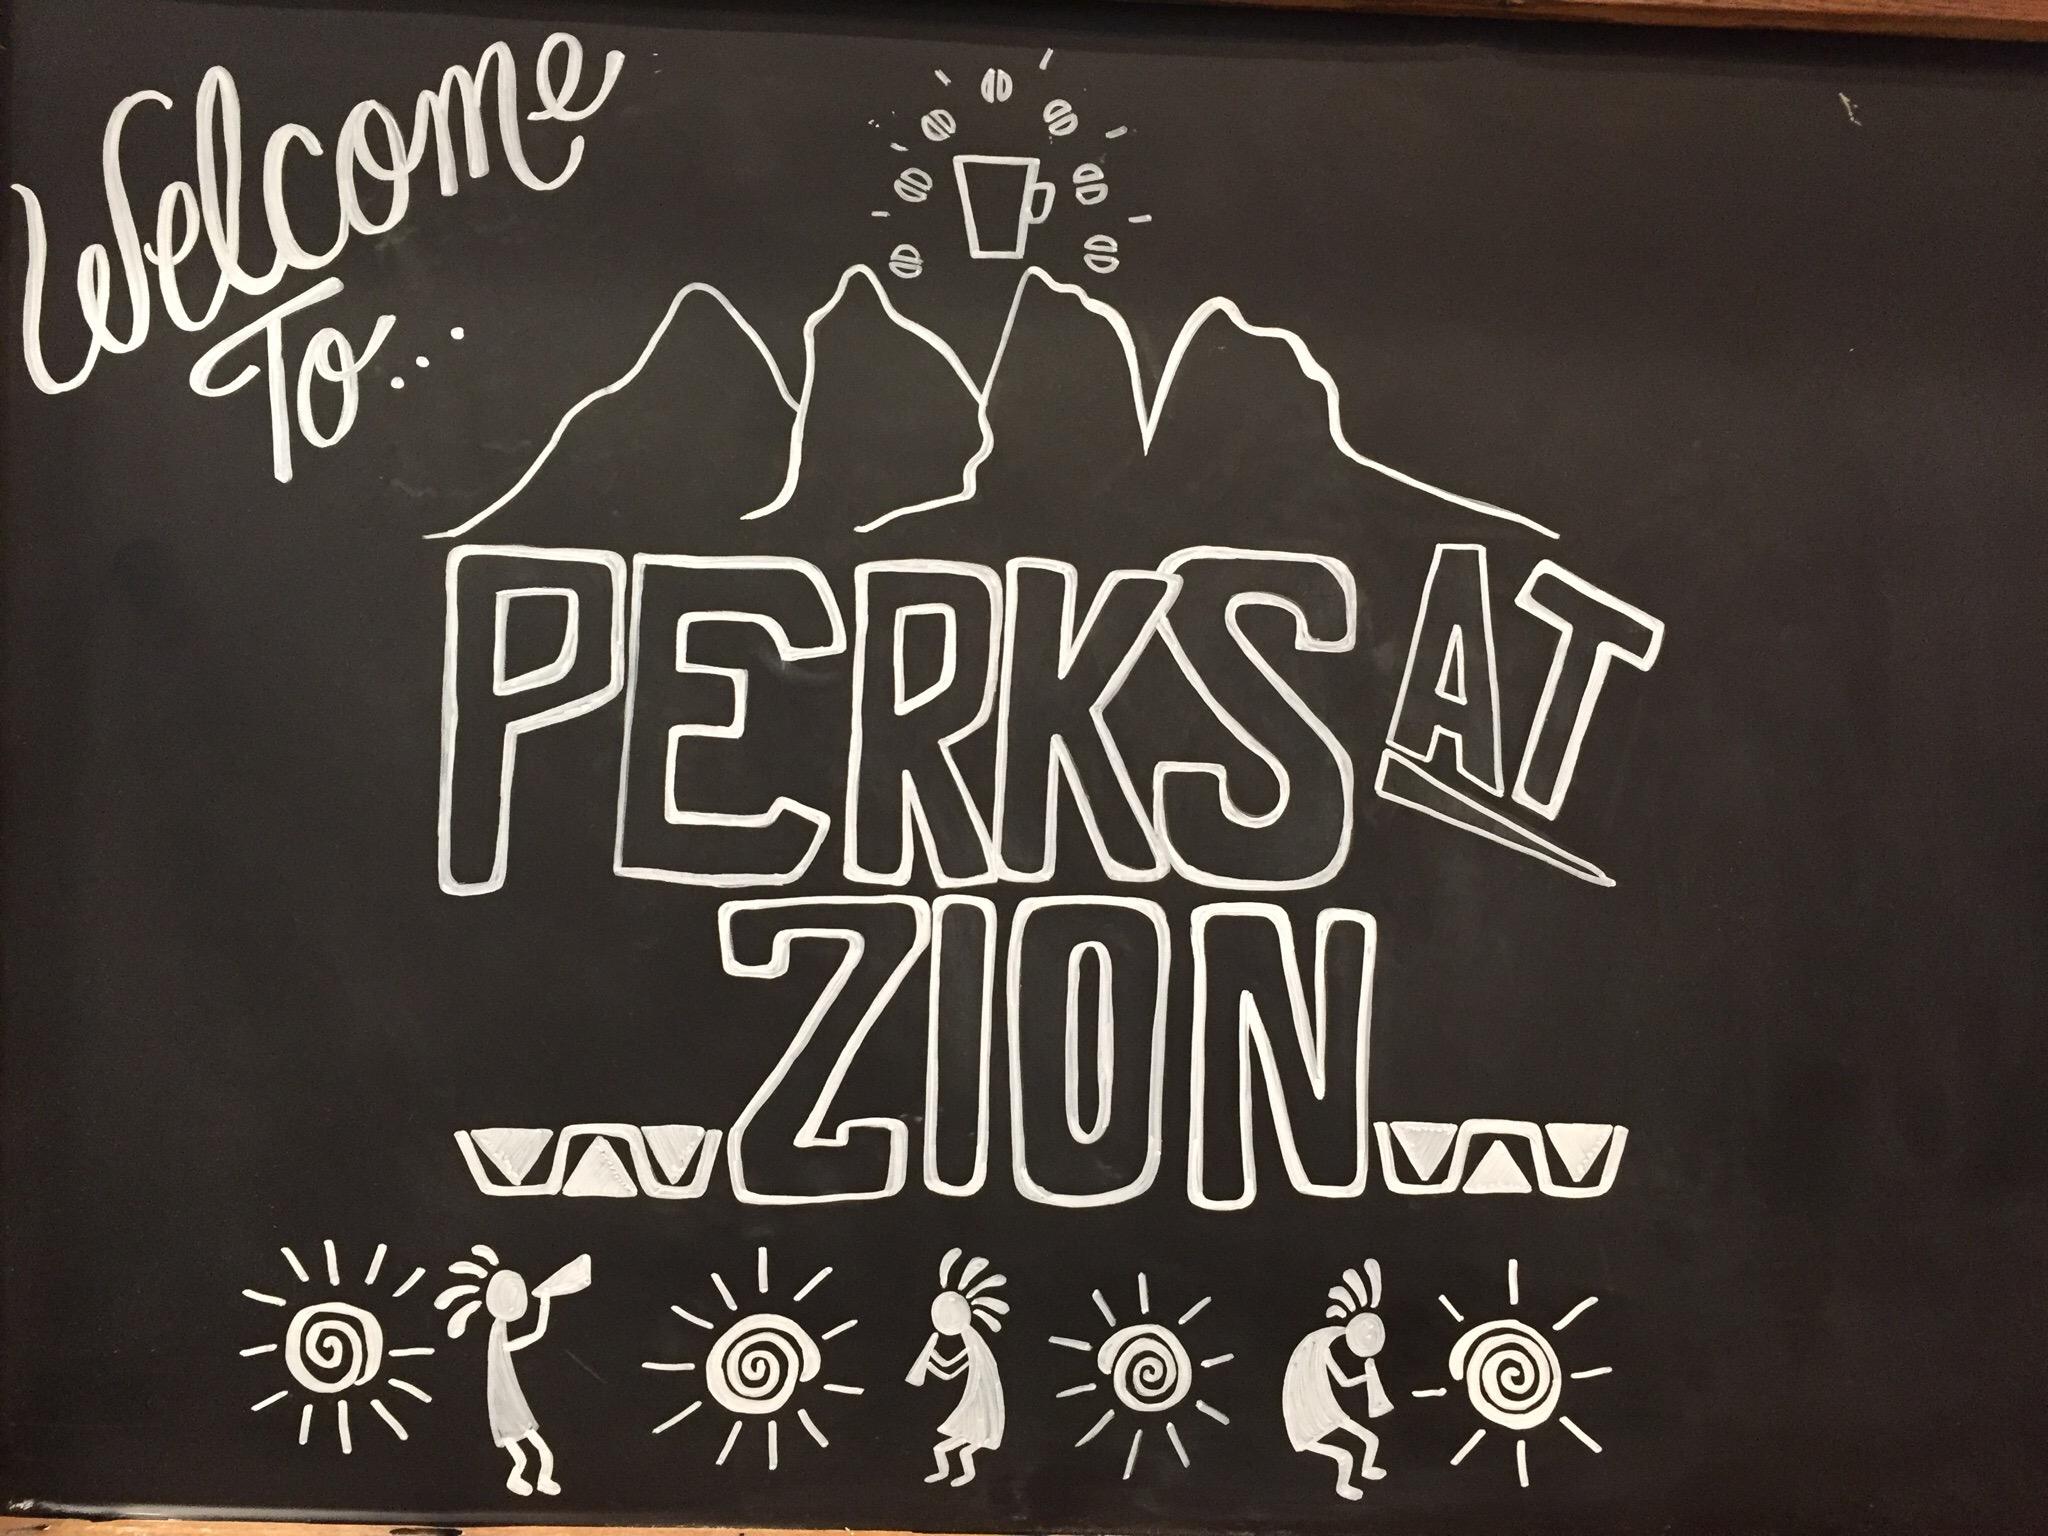 Welcome
To...
PERKS AT
ZION